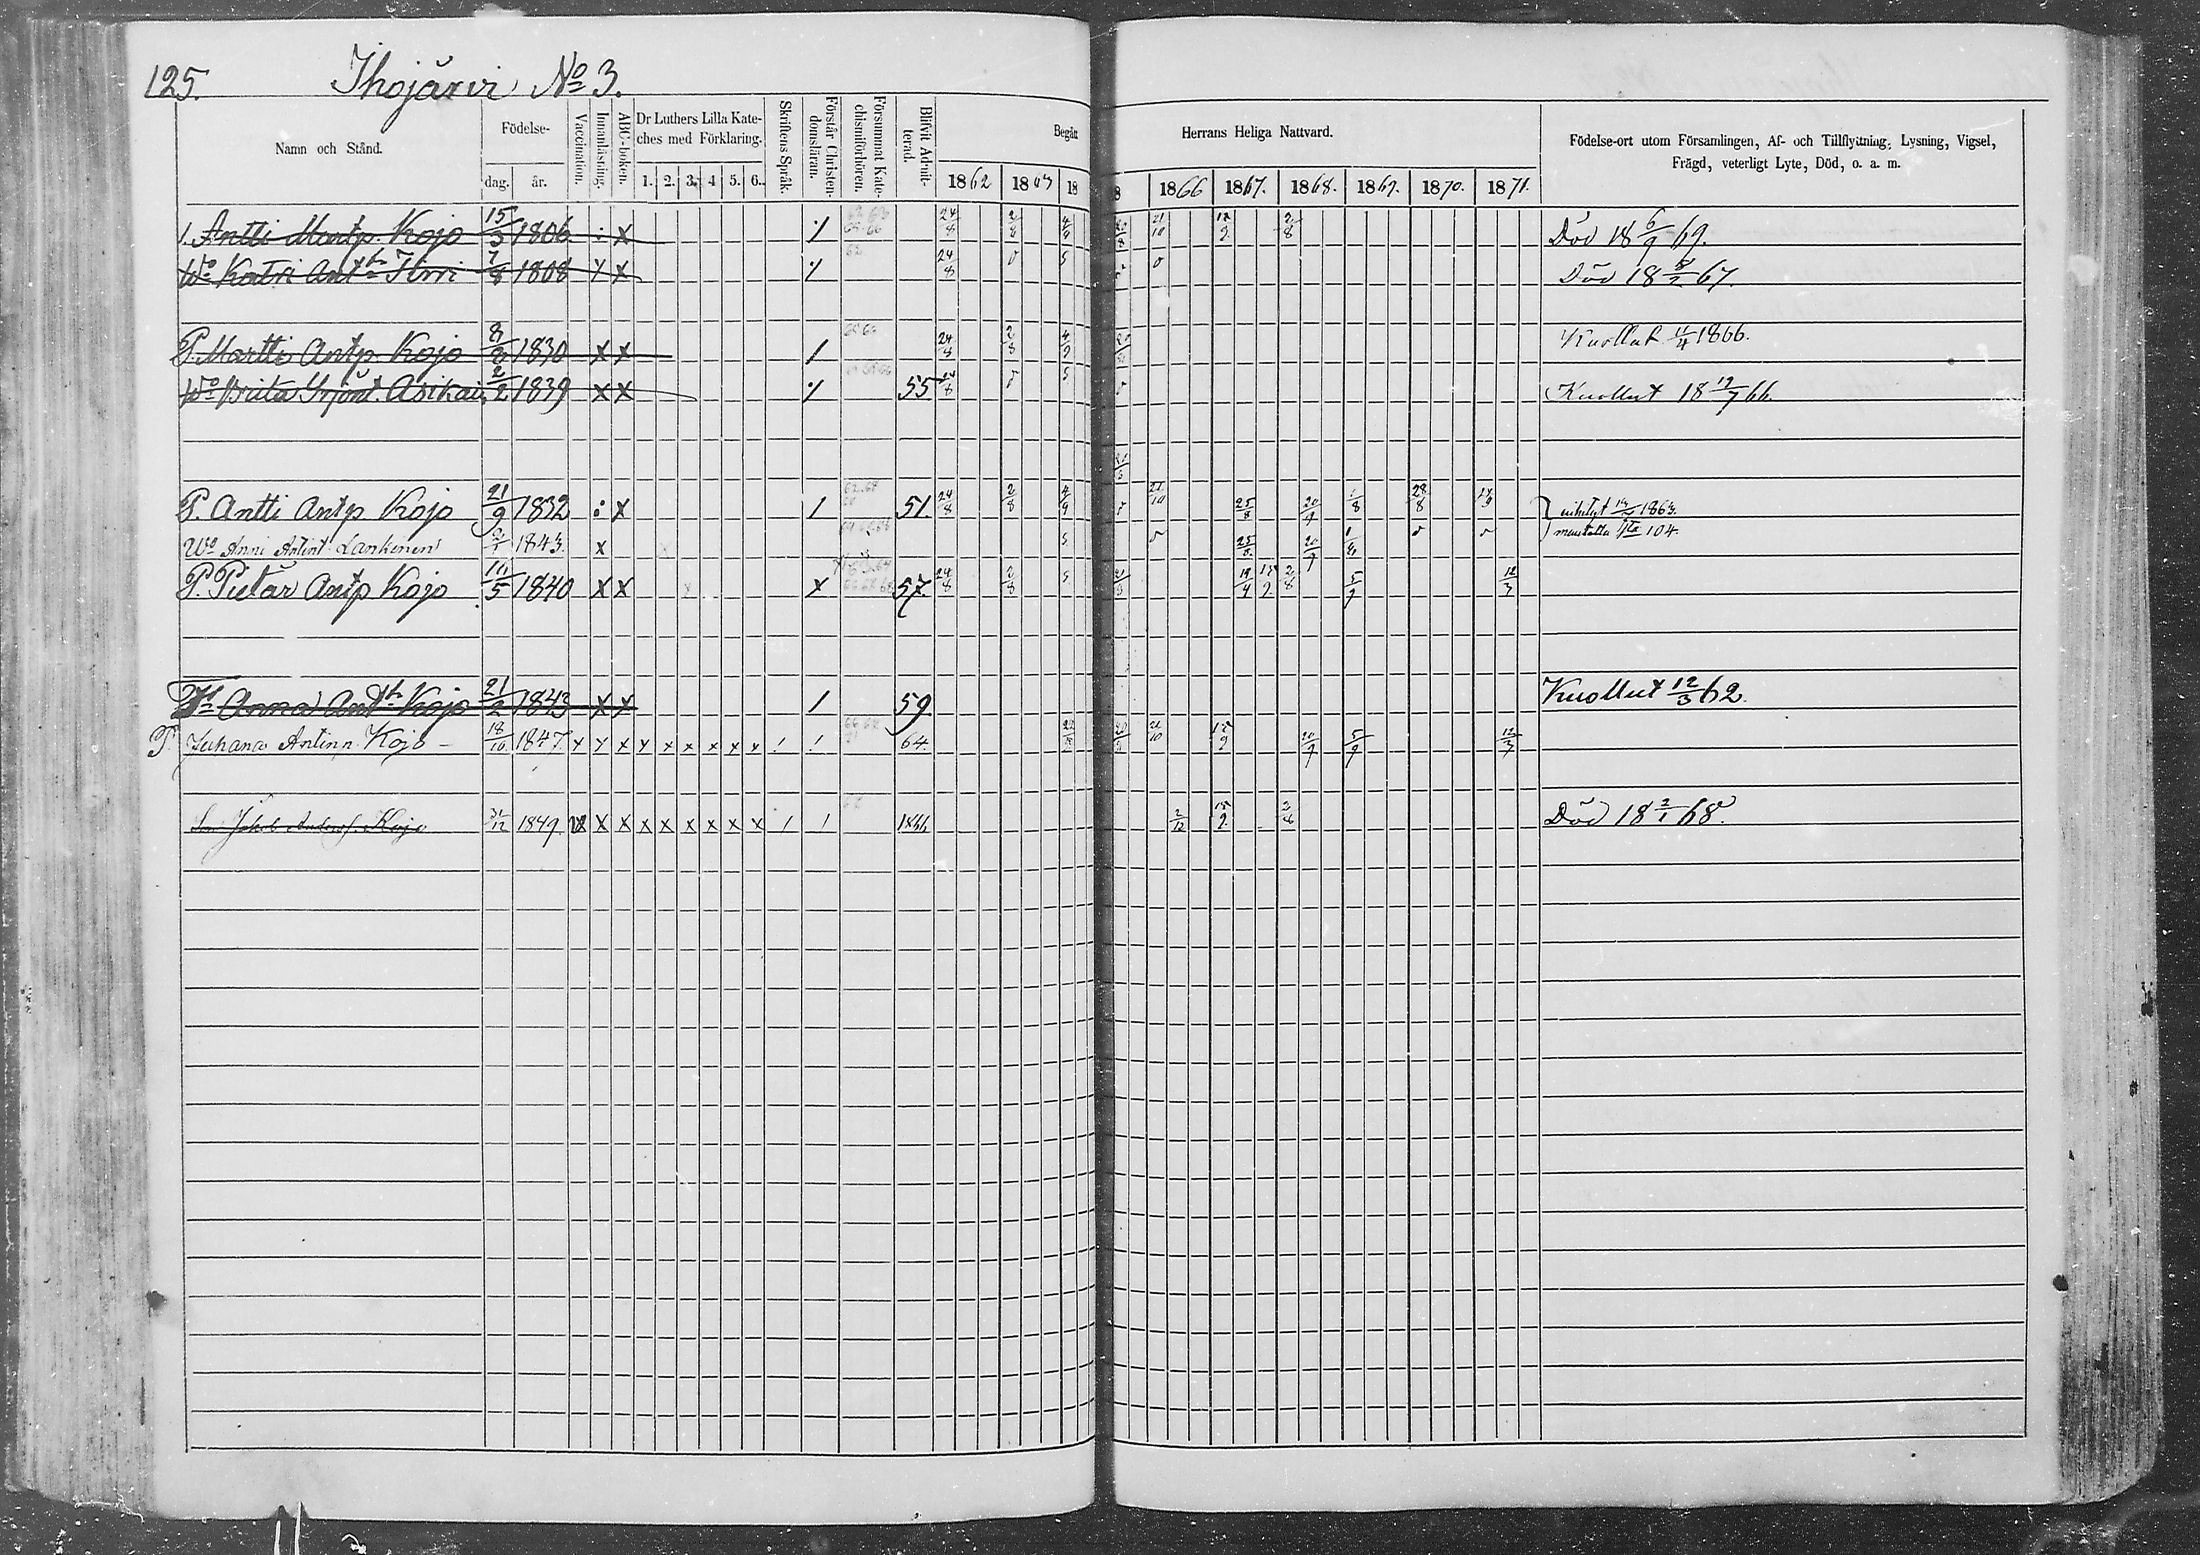 125.
Ihojärvi No 3.
Namn och Stånd.
Födelse-
dag. år.
Vaccination.
Innanläsning.
ABC-boken.
Dr Luthers Lilla Kate-
ches med Förklaring.
1. 2. 3. 4 5. 6.
Skriftens Språk.
Förstår Christen-
domsläran.
Försummat Kate-
chismiförhören.
Blifvit Admit-
terad.
Begån
Herrans Heliga Nattvard.
1862 1863 18 8 1866 1867. 1868. 1869. 1870. 1871.
Födelse-ort utom Församlingen, Af- och Tillflyttning, Lysning, Vigsel,
Frägd, veterligt Lyte, Död, o. a. m.
1. Antti Martp. Kojo 15/3 1806 : x 24/8 2/8 4/9 21/10 15/9 2/8 Död 18 6/9 69.
Wo Katri Anth 7/8 1808 x x 24/8 Död 18 8/2 67.
P. Martti Antp. Kojo 8/8 1830 x x / 24/8 2/8 4/9 Kuollut 11/4 1866.
Wo Brita Yrjönt. Asikain. 2/2 1839 x x 55 24/8 Kuollut 18 19/7 66.
P. Antti Antp Kojo 21/9 1832 : x / 51. 24/8 2/8 4/9 21/10 25/8 20/9 1/8 28/8 vihityt 1863.
Wo Anni Antint. Lankinen 1843. x 25/8 20/9 104.
P. Pietar Antp Kojo 10/5 1840 x x x 57. 24/8 2/8 19/4 2/8 5/9 12/3
Anna Anth Kojo 21/2 1843 x x / 59. Kuollut 12/3 62.
P. Juhana Antinp. Kojo 18/10 1847. x x x x x x x x x / / 64. 21/10 15/9 20/9 5/9 12/3
Son Jakob Andersf. Kojo 31/12 1849. x x x x x x x x / / 1866 2/12 15/9 2/8 Död 18 2/1 68.